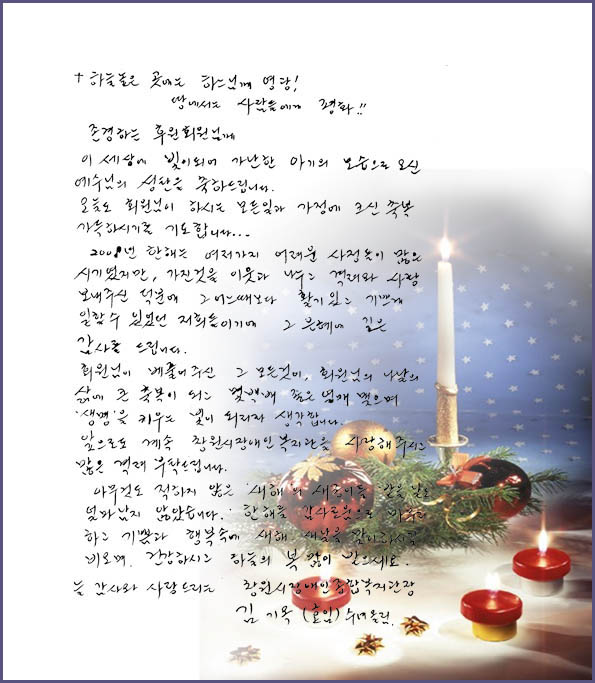 † 하늘높은 곳에는 하느님께 영광!
땅에서는 사람들에게 평화!!
존경하는 후원회원님께
이 세상에 빛이되어 가난한 아기의 모습으로 오신
예수님의 성탄을 축하드립니다.
오늘도 회원님이 하시는 모든일과 가정에 크신 축복
가득하시기를 기도합니다...
2008년 한해는 여러가지 어려운 사정들이 많은
시기였지만, 가진것을 이웃과 나누고 격려와 사랑
보내주신 덕분에 그 어느때보다 활기있고 기쁘게
일할수 있었던 저희들이기에 그 은혜에 깊은
감사를 드립니다.
회원님이 베풀어주신 그 모든것이, 회원님의 나날의
삶에 큰 축복이 되고 몇백배 좋은 열매 맺으며
'생명'을 키우는 빛이 되리라 생각합니다.
앞으로도 계속 창원시장애인복지관을 사랑해주시고
많은 격려 부탁드립니다.
아무것도 적히지 않은 '새해'의 새로운 날
얼마남지 않았습니다. 한해를 감사로움으로 마무리
하고 기쁨과 행복속에 새해 새날을 맞이하시길
비오며. 건강하시고 하늘의 복 많이 받으세요.
늘 감사와 사랑드리는 창원시장애인종합복지관장
김 기옥 (효임) 수녀올림.